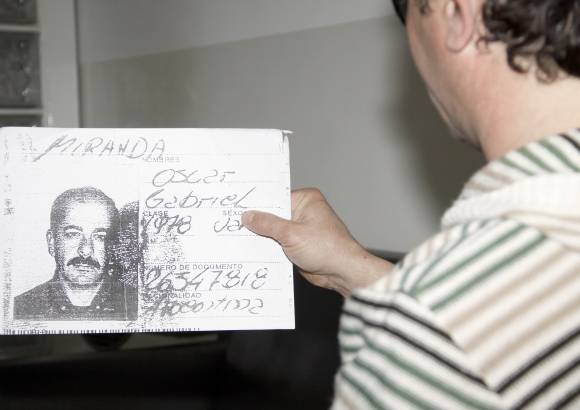 MIRANDA
NOMBRES
OSCAR
Gabriel
CLASE SEXO
1978
NUMERO DE DOCUMENTO
26547818
NACIONALIDAD